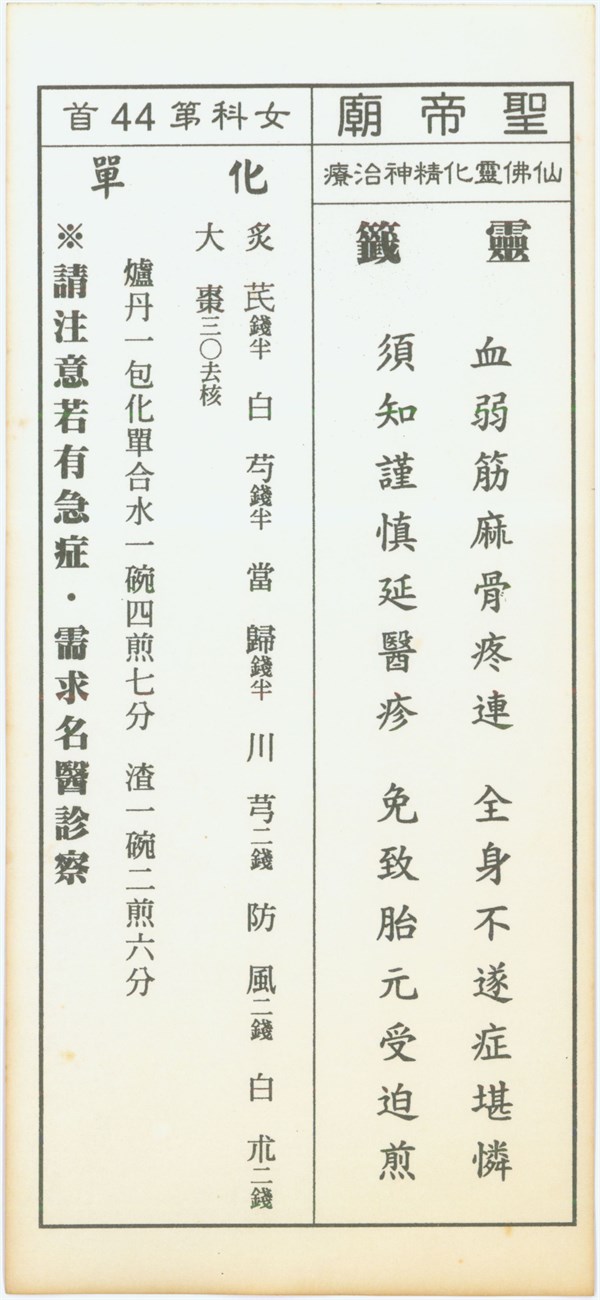 聖帝廟
仙佛靈化精神治療
靈籤
血弱筋麻骨疼連　全身不遂症堪憐
須知謹慎延醫疹　免致胎元受迫煎
女科第44首
化單
炙芪錢半　白芍錢半　當歸錢半　川芎二錢　防風二錢　白朮二錢
大棗三〇去核
爐丹一包化單合水一碗四煎七分　渣一碗二煎六分
※請注意若有急症・需求名醫診察